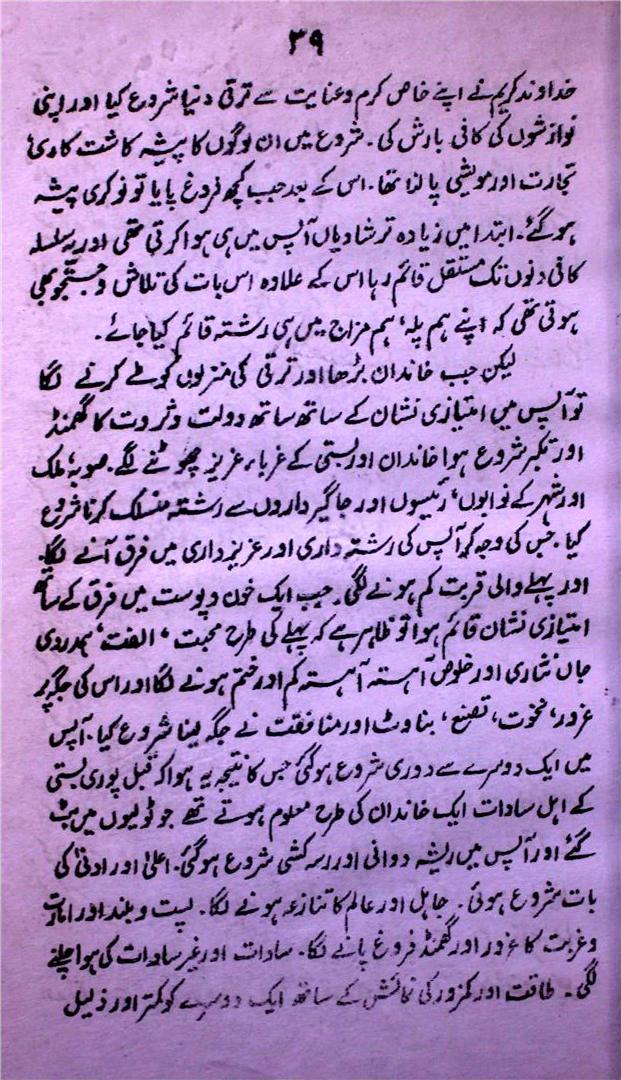 ۳۹
خداوند کریم نے اپنے خاص کرم و عنایت سے ترقی دنیا شروع کیا اور اپنی
نوازشوں کی کافی بارش کی۔ شروع میں ان لوگوں کا پیشہ کاشت کاری
تجارت اور مویشی پالنا تھا۔ اس کے بعد جب کچھ فروغ پایا تو نوکری پیشہ
ہوگئے۔ ابتدا میں زیادہ تر شادیاں آپس میں ہی ہوا کرتی تھی اور یہ سلسلہ
کافی دنوں تک مستقل قائم رہا اس کے علاوہ اس بات کی تلاش و جستجو بھی
ہوتی تھی کہ اپنے ہم پلہ، ہم مزاج میں ہی رشتہ قائم کیا جائے۔
لیکن جب خاندان بڑھا اور ترقی کی منزلوں کو طے کرنے لگا
تو آپس میں امتیازی نشان کے ساتھ ساتھ دولت و ثروت کا گھمنڈ
اور تکبر شروع ہوا خاندان اور بستی کے غرباء عزیز چھوٹنے لگے۔ صوبہ، ملک
اور شہر کے نوابوں، رئیسوں اور جاگیرداروں سے رشتہ منسلک کرنا شروع
کیا۔ جس کی وجہ کر آپس کی رشتہ داری اور عزیز داری میں فرق آنے لگا۔
اور پہلے والی قربت کم ہونے لگی۔ جب ایک خون و پوست میں فرق کے ساتھ
امتیازی نشان قائم ہوا تو ظاہر ہے کہ پہلے کی طرح محبت، الفت، ہمدردی
جاں نثاری اور خلوص آہستہ آہستہ کم اور ختم ہونے لگا اور اس کی جگہ پر
غرور، نخوت، تصنع، بناوٹ اور منافقت نے جگہ لینا شروع کیا۔ آپس
میں ایک دوسرے سے دوری شروع ہوگئی جس کا نتیجہ یہ ہوا کہ قبل پوری بستی
کے اہل سادات ایک خاندان کی طرح معلوم ہوتے تھے جو ٹولیوں میں بٹ
گئے اور آپس میں ریشہ دوانی اور رسہ کشی شروع ہوگئی۔ اعلیٰ اور ادنیٰ کی
بات شروع ہوئی۔ جاہل اور عالم کا تنازعہ ہونے لگا۔ پست و بلند اور امارت
و غربت کا غرور اور گھمنڈ فروغ پانے لگا۔ سادات اور غیر سادات کی ہوا چلنے
لگی۔ طاقت اور کمزور کی نمائش کے ساتھ ایک دوسرے کو کمتر اور ذلیل